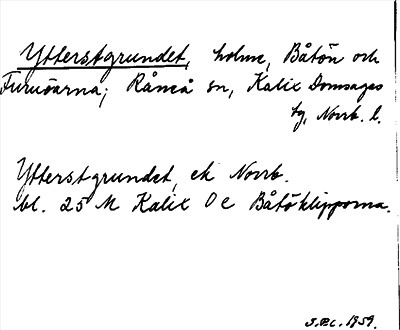 Ytterstgrundet, holme, Båtön och
Furuöarna; Råneå sn, Kalix Domsagas
tg, Norrb. l.
Ytterstgrundet, ek Norrb.
bl. 25 M Kalix O c Båtöklipporna.
1959.